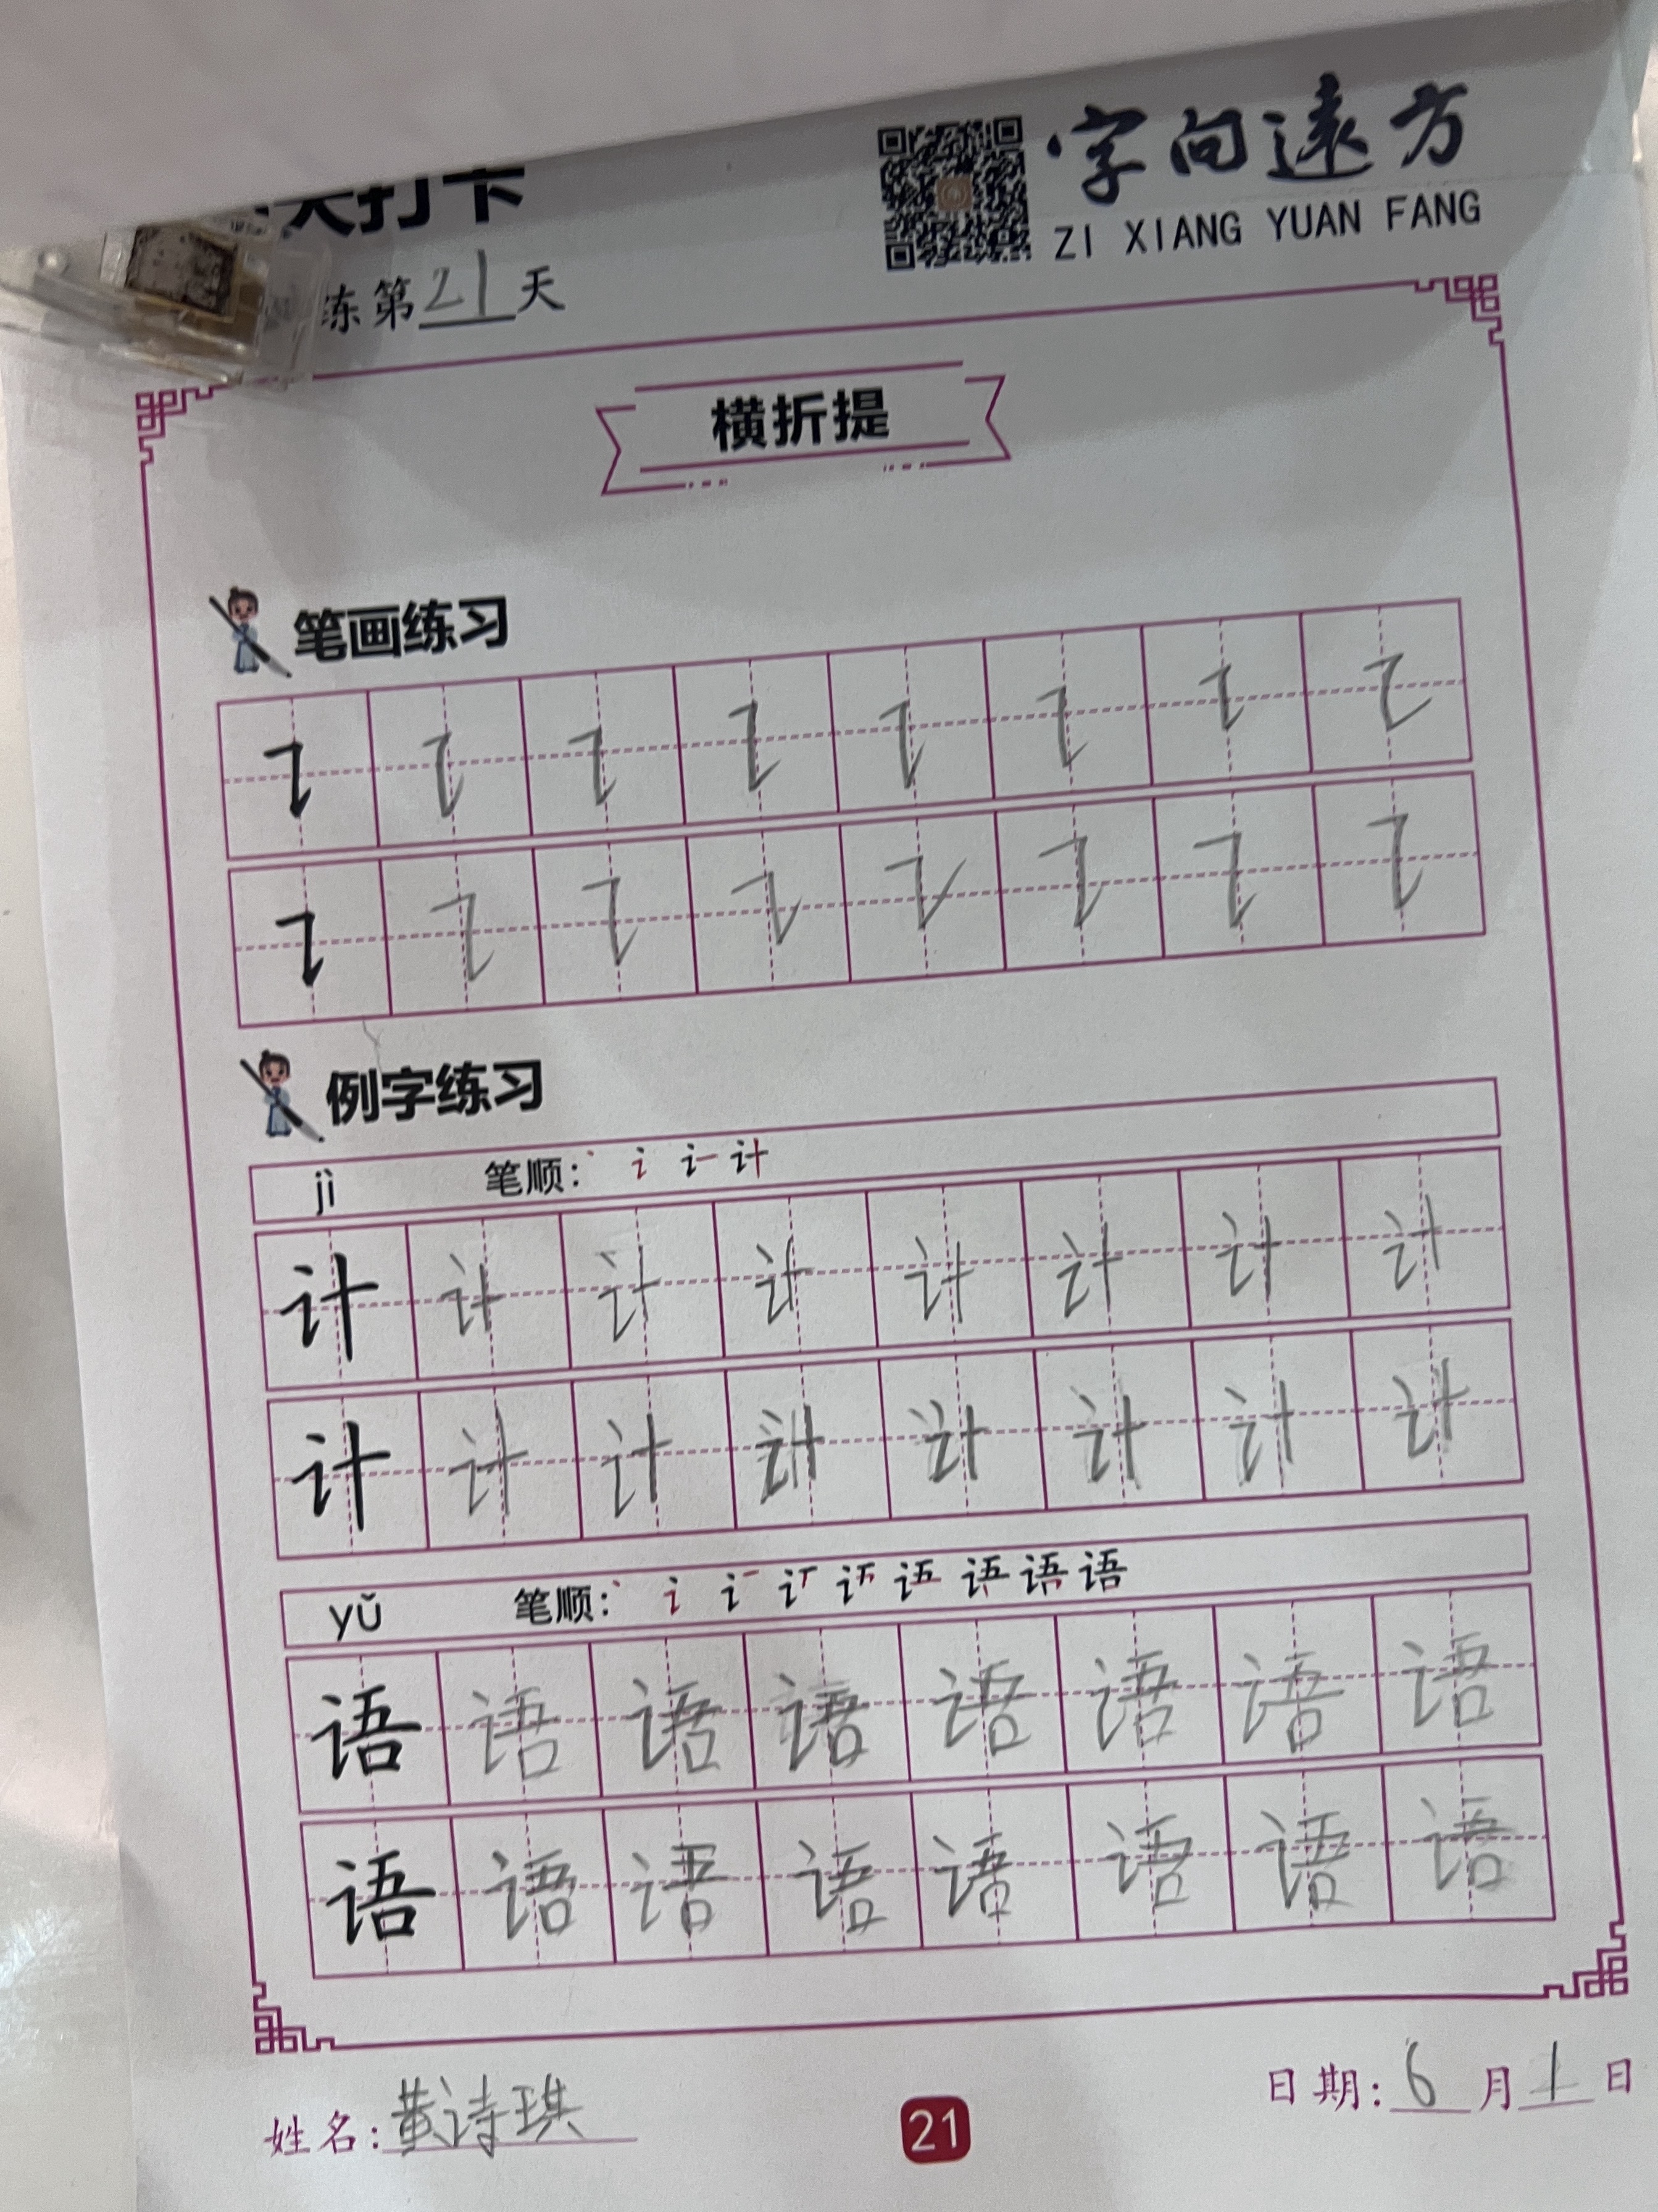 天打卡
字向遠方
ZI XIANG YUAN FANG
练第21天
横折提
笔画练习
例字练习
jì 笔顺：丶 讠 计
计 计 计 计 计 计 计 计
计 计 计 计 计 计 计 计
yǔ 笔顺：丶 讠 语
语 语 语 语 语 语 语 语
语 语 语 语 语 语 语 语
姓名：黄诗琪
21
日期：6月1日